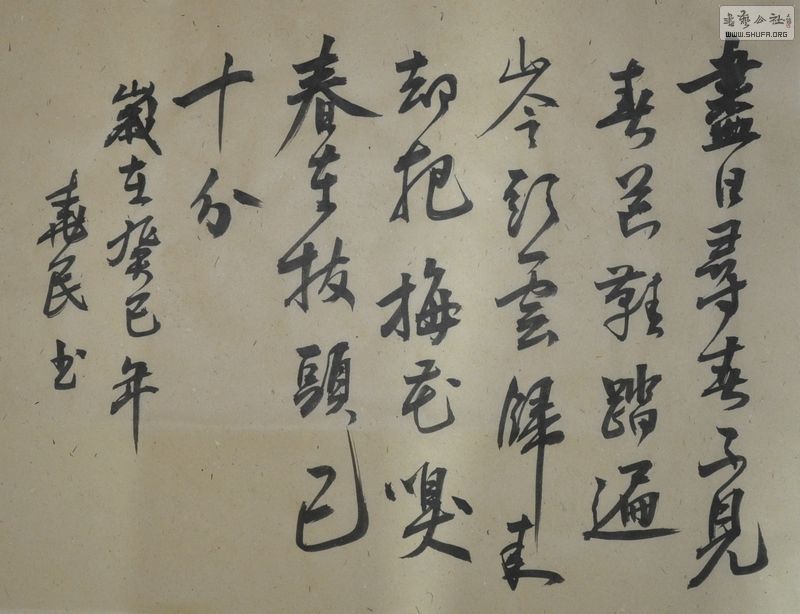 盡日尋春不見
春芒鞋踏遍
岑頭雲歸来
却把梅花嗅
春在枝頭已
十分
歲在癸巳年
義民书
書藝公社
WWW.SHUFA.ORG